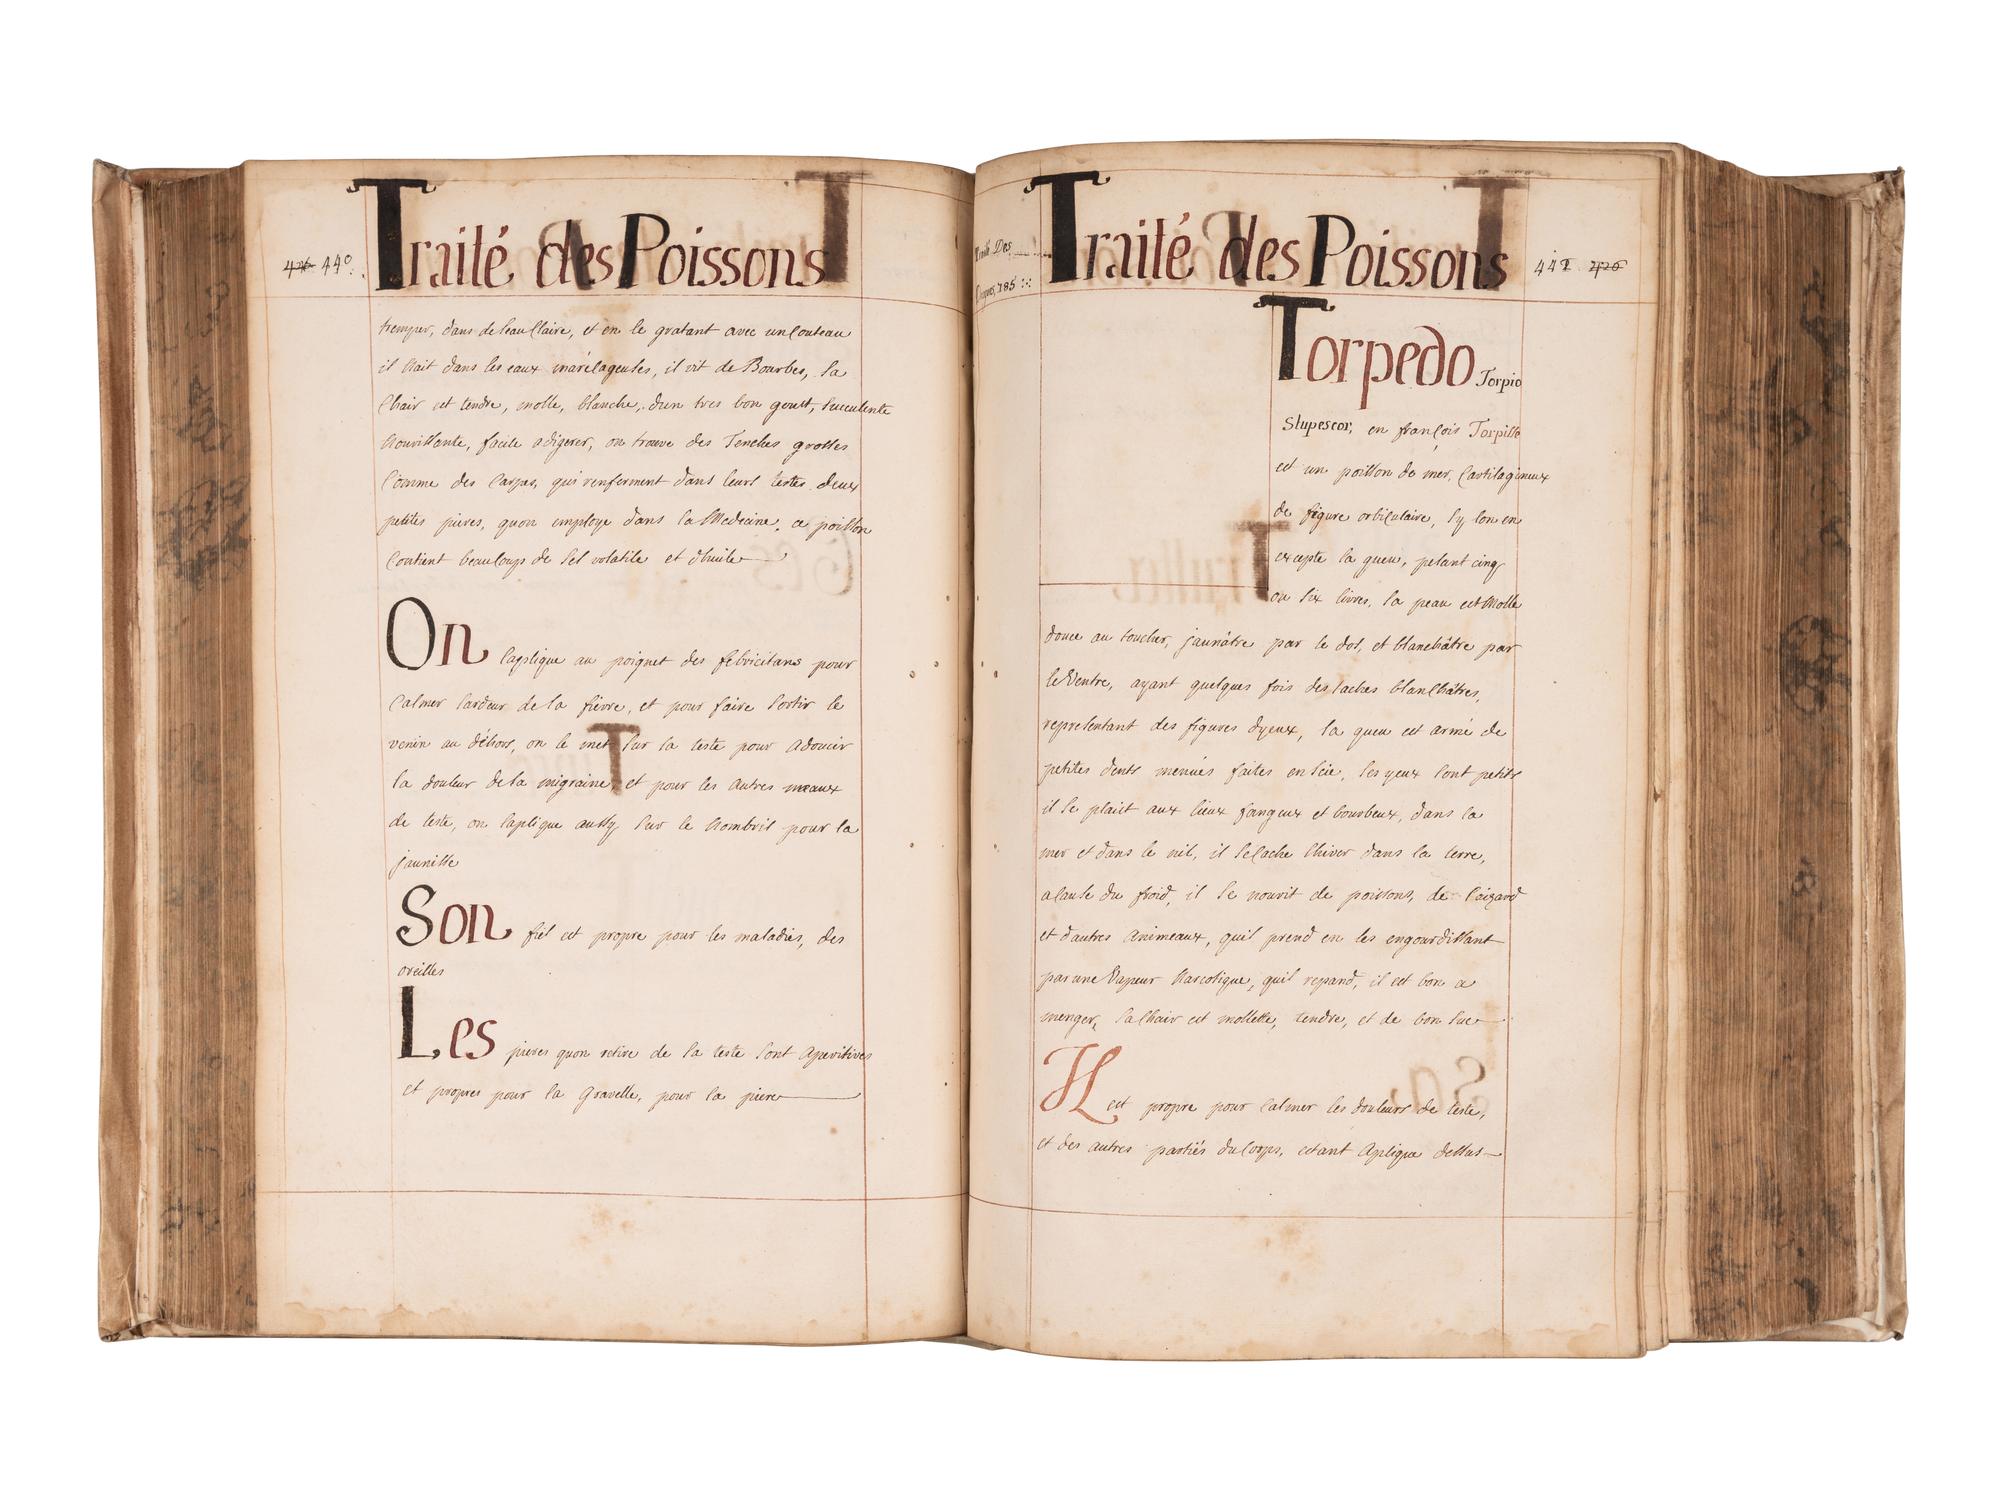 426 440.
Traité des Poissons
tremper, dans de leau Claire, et en le gratant avec un Couteau
il Nait dans les eaux marélageuses, il vit de Bourbes, sa
Chair est tendre, molle, blanche, dun tres bon goust, succulente
Nourissante, facile adigerer, on trouve des Tenches grosses
Comme des Carpes, qui renferment dans leurs testes deux
petites pieres, quon employe dans la Medecine, ce poisson
Contient beaucoups de sel volatile et dhuile
On laplique au poignet des febricitans pour
Calmer lardeur de la fievre, et pour faire sortir le
venin au déhors, on le met sur la teste pour adoucir
la douleur de la migraine, et pour les autres meaux
de teste, on laplique aussy sur le Nombril pour la
jaunisse
Son fiel est propre pour les maladies, des
oreilles
Les pieres quon retire de sa teste sont Aperitives
et propres pour la Gravelle, pour la piere
Traité Des
185
Traité des Poissons
441 426
Torpedo Torpio
Stupescor, en françois Torpille
est un poisson de mer, Cartilagineux
de figure orbiculaire, sy lon en
excepte la queu, pesant cinq
ou six livres, sa peau est Molle
douce au toucher, jaunâtre par le dos, et blanchâtre par
le Ventre, ayant quelques fois des taches blanchâtres,
representant des figures dyeux, sa queu est armé de
petites dents menués faites en scie, ses yeux sont petits
il se plaict aux lieux fangeux et bourbeux, dans la
mer et dans le nil, il se Cache lhiver dans la terre,
acause du froid, il se nourit de poissons, de Laizard
et dautres Animeaux, quil prend en les engourdissant
par une Vapeur Narcotique, quil repand, il est bon a
menger, sa Chair est mollette, tendre, et de bon suc
Il est propre pour Calmer les douleurs de teste,
et des autres partiés du Corps, estant Aplique dessus